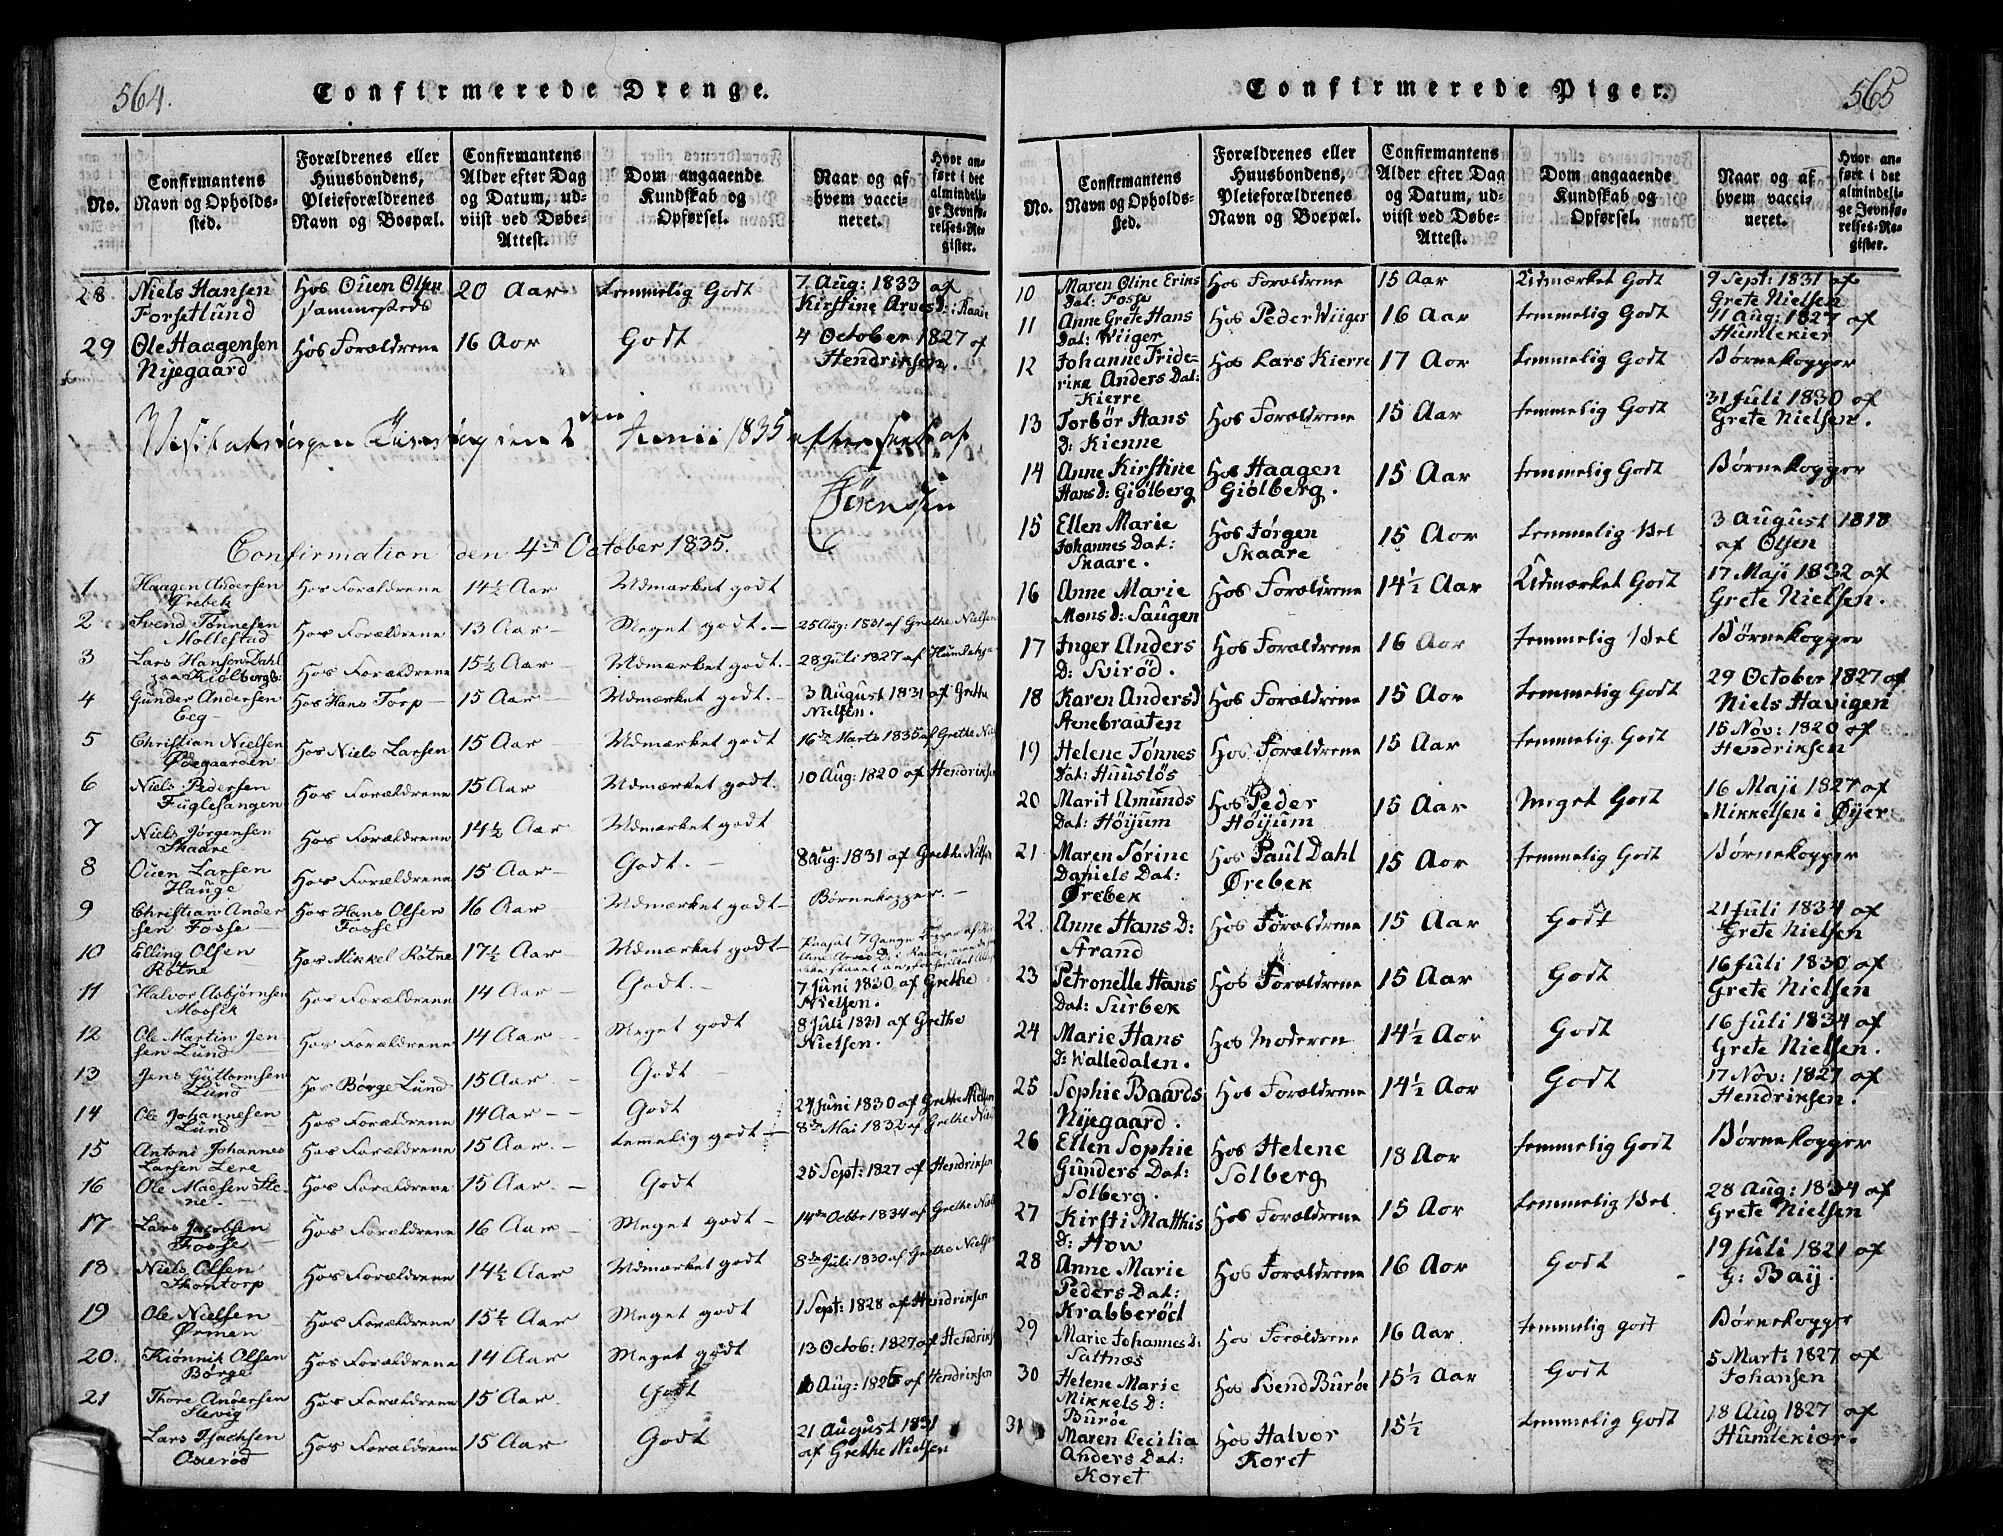 564.
Confirmerede Drenge.
No.
Confirmantens Navn og Opholds-sted.
Forældrenes eller Huusbondens, Pleieforældrenes Navn og Boepæl.
Confirmantens Alder efter Dag og Datum, ud-viist ved Døbe-Attest.
Dom angaaende Kundskab og Opførsel.
Naar og af hvem vacci-neret.
Hvor an-ført i det almindeli-ge Jevnfø-relses-Re-gister.
28 Niels Hansen Hos Ouen Olsen 20 Aar Temmelig Godt 7 Aug: 1833 af
Forsetlund Sammesteds Kirstine Arvesd: Raaie
29 Ole Haagensen Hos Forældrene 16 Aar Godt 4 October 1827 af
Nyegaard Hendriksen.
den Junii 1835 af
Sørenssen
Confirmation den 4de October 1835.
1 Haagen Andersen Hos Forældrene 14½ Aar Udmærket godt
Ørebek
2 Svend Tønnesen Hos Forældrene 13 Aar - Meget godt. - 25 Aug: 1831 af Grethe Nielsen
Mollestad
3 Lars Hansen Dahl Hos Forældrene 15½ Aar - Udmærket godt. - 28 Juli 1827 af
paa Kiølbergb:
4 Gunder Andersen Hos Hans Torp - 15 Aar - Udmærket godt. - 3 August 1831 af Grethe
Eeg - Nielsen.
5 Christian Nielsen Hos Niels Larsen 15 Aar - Udmærket godt 16de Marts 1835 af Grethe
Ødegaarden
6 Niels Pedersen Hos Forældrene 15 Aar Udmærket godt. 10 Aug: 1820 af Hendriksen
Fuglesangen
7 Niels Jørgensen Hos Forældrene 14½ Aar Udmærket godt
Skaare
8 Ouen Larsen Hos Forældrene 15 Aar - Godt. - 8 Aug: 1831 af Grethe Nielsen
Hauge
9 Christian Ander Hos Hans Olsen 16 Aar Udmærket godt - Børnekopper. -
sen Fosse - Fosse
10 Elling Olsen Hos Mikkel Røtne 17½ Aar - Udmærket godt -
Røtne
11 Halvor Asbjørnsen Hos Forældrene 14 Aar - Godt. - 7 Juni 1830 af Grethe
Moosek Nielsen.
12 Ole Martin Jen- Hos Forældrene 14 Aar - Meget godt 8 Juli 1831 af Grethe
sen Lund - Nielsen.
13 Jens Guttormsen Hos Børge Lund 15 Aar. - Godt -
Lund
14 Ole Johannesen Hos Forældrene 14 Aar - - Godt 24 Juni 1830 af Grethe Nielsen
Lund
15 Antoni Johannes Hos Forældrene 15 Aar. - Temelig godt - 8de Mai 1832 af Grethe
Larsen Lere
16 Ole Madsen Ste- Hos Forældrene 15 Aar. - Godt 25 Sept: 1827 af Hendriksen
ne. -
17 Lars Jacobsen Hos Forældrene 16 Aar - Meget godt - 14de Octbr 1834 af Grethe
Fosse -
18 Niels Olsen Hos Forældrene 14½ Aar Udmærket godt 8de Juli 1830 af Grethe Nielsen
Skontorp
19 Ole Nielsen Hos Forældrene 15½ Aar Meget godt 1 Sept: 1828 af Hendriksen
Ørmen
20. Kiønnik Olsen Hos Forældrene 14 Aar Meget godt 13 Octob: 1827 af Hendriksen
Børge
21 Thore Andersen Hos Forældrene 15 Aar. Godt Aug: 1825 af Hendriksen
Slevig
Lars Isachsen Hos Forældrene 15 Aar Godt 21 August 1831
Oxerød af Grethe Nielsen
565
Confirmerede Piger.
No.
Confirmantens Navn og Opholds-sted.
Forældrenes eller Huusbondens, Pleieforældrenes Navn og Boepæl.
Confirmantens Alder efter Dag og Datum, ud-viist ved Døbe-Attest.
Dom angaaende Kundskab og Opførsel.
Naar og af hvem vacci-neret.
Hvor an-ført i det almindeli-ge Jevnfø-relses-Re-gister.
10 Maren Oline Eriks Hos Forældrene 15 Aar Udmærket Godt 9 Sept: 1831 af
Dat: Fosse Grete Nielsen
11 Anne Grete Hans Hos Peder Wiiger 16 Aar temmelig Godt 11 Aug: 1827 af
Dat: Wiiger Humlekier
12 Johanne Fride- Hos Lars Kierre 17 Aar Temmelig Godt Børnekopper
rika Anders Dat:
Kierre
13 Torbør Hans Hos Forældrene 15 Aar temmelig Godt 31 Juli 1830 af
D: Kienne Grete Nielsen.
14 Anne Kirstine Hos Haagen 15 Aar temmelig Godt Børnekopper
Hans D: Giølberg Giølberg.
15 Ellen Marie Hos Jørgen 15 Aar temmelig Vel 3 August 1818
Johannes Dat: Skaare af Olsen
Skaare.
16 Anne Marie Hos Forældrene 14½ Aar Udmærket Godt 17 Maji 1832 af
Mons D: Saugen Grete Nielsen.
17 Inger Anders Hos Forældrene 16 Aar Temmelig Vel Børnekopper
D: Svirød.
18 Karen Anders D Hos Forældrene 15 Aar temmelig Godt 29 October 1827 af
Stenebraaten Niels Havigen
19 Helene Tønnes Hos Forældrene 15 Aar temmelig. Godt 15 Nov: 1820 af
Dat: Huusløs Hendriksen
20 Marit Amunds Hos Peder 15 Aar Meget Godt 16 Maji 1827 af
Dat: Høijum Høijum Mikkelsen i Øyer
21 Maren Sørine Hos Paul Dahl 15 Aar temmelig Godt Børnekopper
Daniels Dat: Ørebek
Ørebek
22. Anne Hans D: Hos Forældrene 15 Aar Godt 21 Juli 1834 af
Strand Grete Nielsen
23 Petronelle Hans Hos Forældrene 15 Aar Godt 16 Juli 1830 af
Dat: Surbek Grete Nielsen
24 Marie Hans Hos Moderen 14½ Aar Godt 16 Juli 1834 af
D: Walledalen. Grete Nielsen.
25 Sophie Baards Hos Forældrene 14½ Aar Godt 17 Nov: 1827 af
Nyegaard. Hendriksen.
26 Ellen Sophie Hos Helene 18 Aar temmelig Godt Børnekopper
Gunders Dat: Solberg
Solberg.
27 Kirsti Matthis Hos Forældrene 15 Aar temmelig Vel. 28 Aug: 1834 af
D: How Grete Nielsen
28 Anne Marie Hos Forældrene 16 Aar Godt 19 Juli 1821 af
Peders Dat: G: Bay.
Krabberød
29 Marie Johannes D: Hos Forældrene 16 Aar temmelig godt Børnekopper
Saltnæs
30 Helene Marie Hos Svend Burøe 15½ Aar Godt 5 Marti 1827 af
Mikkels D: Johansen
Burøe
31 Maren Cecilia Hos Halvor 15½ temmelig Godt 18 Aug 1827 af
Anders Dat: Koret Humlekiær.
Koret